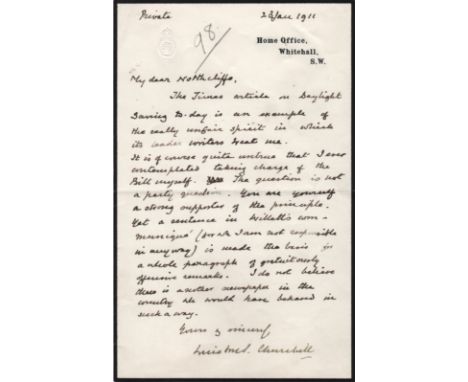 Private
2 Jan 1911
98/
Home Office,
Whitehall,
S.W.
My dear Northcliffe,
The Times article on Daylight
Saving to-day is an example of
the really unfair spirit in which
its leader writers treat me.
It is of course quite untrue that I ever
contemplated taking charge of the
Bill myself. The question is not
a party question. You are yourself
a strong supporter of the principle.
Yet a sentence in Willett's com-
muniqué (for wh I am not responsible
in any way) is made the basis for
a whole paragraph of gratuitously
offensive remarks. I do not believe
there is another newspaper in the
country wh would have behaved in
such a way.
Yours sincerely
Winston S. Churchill